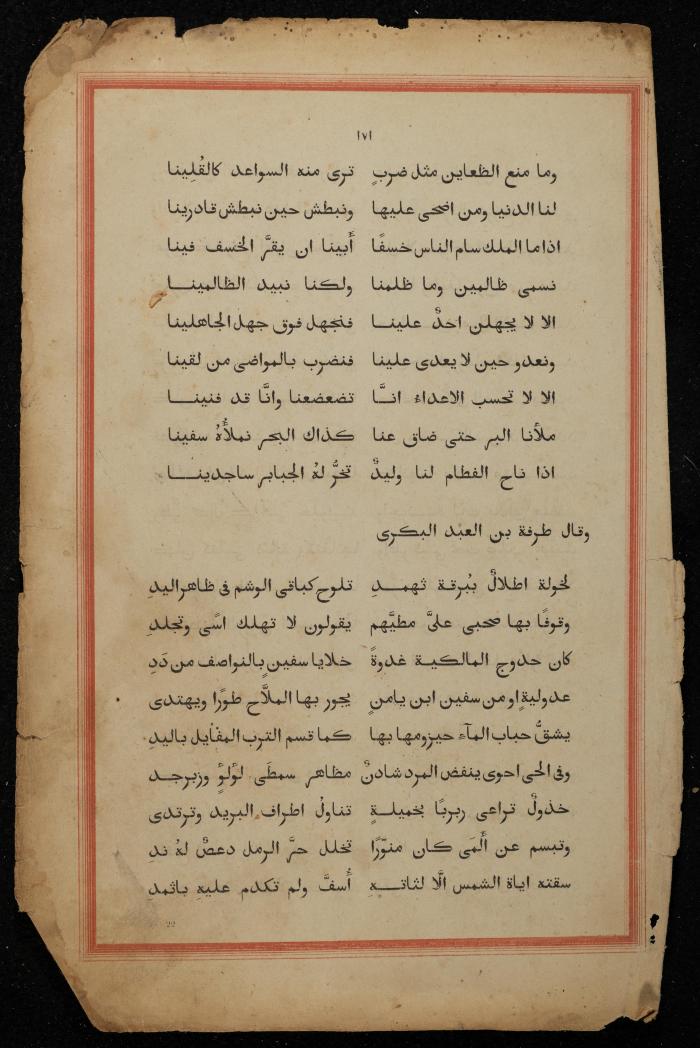 ١٧١
وما منع الظعاين مثل ضربٍ ترى منه السواعد كالقُلِينا
لنا الدنيا ومن اضحى عليها ونبطش حين نبطش قادرينا
اذا ما الملك سام الناس خسفًا أبينا ان يقرَّ الخسف فينا
نسمى ظالمين وما ظلمنا ولكنا نبيد الظالمينـــا
الا لا يجهلن احدٌ علينـــا فنجهل فوق جهل الجاهلينا
ونعدو حين لا يعدى علينا فنضرب بالمواضى من لقينا
الا لا تحسب الاعداء انـــَّا تضعضعنا وانَّا قد فنينـــا
ملأنا البر حتى ضاق عنا كذاك البحر نملأُهُ سفينا
اذا ناح الفطام لنا وليدٌ تخرُّ لهُ الجبابر ساجدينـــا
وقال طرفة بن العبد البكرى
لخولة اطلالٌ ببُرقة ثهمــدِ تلوح كباقى الوشم فى ظاهر اليدِ
وقوفًا بها صحبى علىَّ مطيَّهم يقولون لا تهلك اسًى وتجلدِ
كان حدوج المالكية غدوةً خلايا سفين بالنواصف من دَدِ
عدوليةٍ او من سفين ابن يامنٍ يجور بها الملَّاح طورًا ويهتدى
يشقُّ حباب المآء حيزومها بها كما قسم الترب المفايل باليدِ
وفى الحى احوى ينفض المرد شادنٌ مظاهر سمطَى لؤلؤٍ وزبرجــد
خذولٌ تراعى ربربًا بخميلــةٍ تناولُ اطراف البريد وترتدى
وتبسم عن أَلمَى كان منوّرًا تخلل حرَّ الرمل دعصٌ لهُ ندِ
سقته اياة الشمس الَّا لثاتــهِ أُسفَّ ولم تكدم عليهِ باثمدِ
22